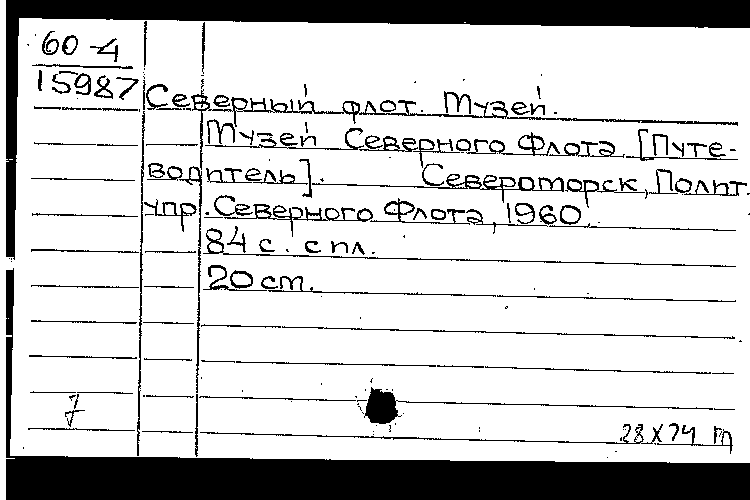 60-4
15987
Северный флот. Музей.
Музей Северного Флота [Путе-
водитель]. Североморск, Полит.
упр. Северного Флота, 1960.
84 с. с пл.
20 см.
7
28 X 74 m